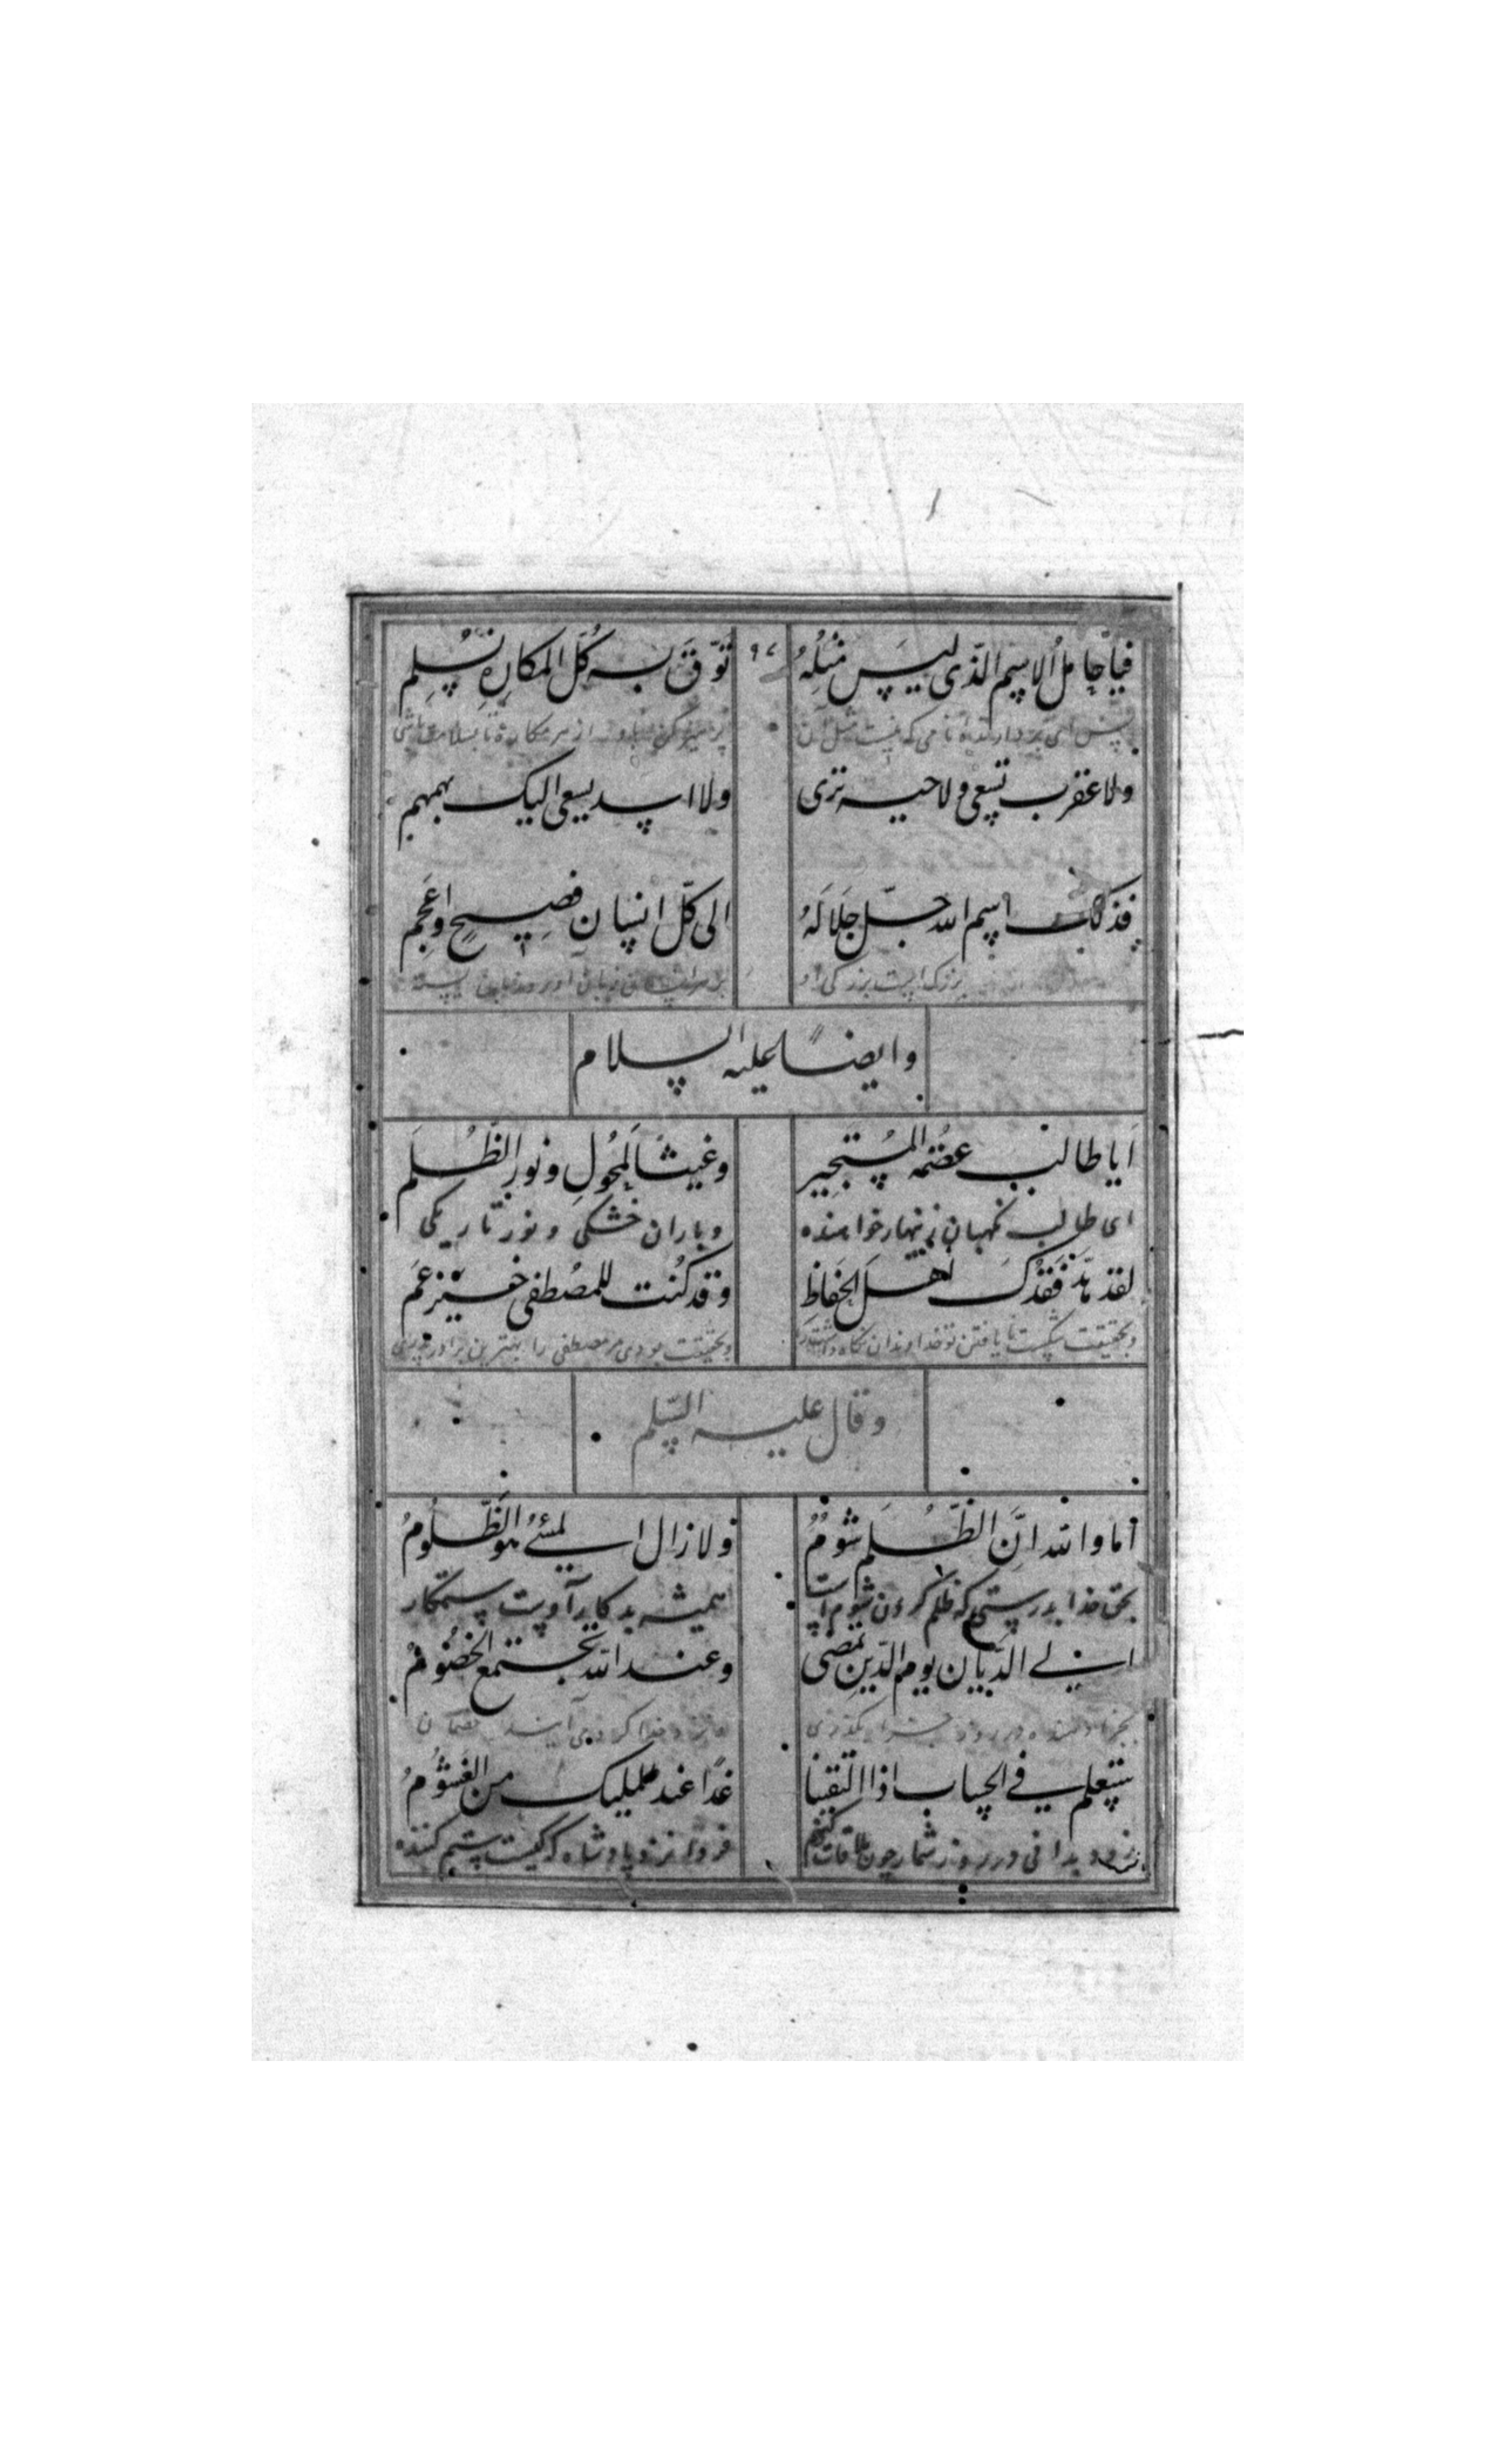 فيا حامل الاسم الذى ليس مثلهُ توقَّ به كلّ المكاره تسلم
۹۷
پس ای بردارنده نامی که نیست مثل آن پرهیز کن باو از هر مکاره تا بسلامت باشی
ولا عقرب تسعى ولا حيه ترى ولا اسد يسعى اليك بهمهم
فذلك اسم الله جلّ جلاله الى كلّ انسان فصيحٍ واعجم
بزرک است بزرکی او
وايضًا عليه السلام
اَيا طالب عصمة المُستجير وغيث المُحولِ ونور الظُّلَم
ای طالب نکهبان زنهار خواهنده وباران خشکی ونور تاریکی
لقد هدَّ فَقدُكَ اهل الحِفاظِ وقد كُنت للمصُطفى خيْر عَم
وبحقیقت شکست نا یافتن تو خداوندان نکاه داشت را وبحقیقت بودی مر مصطفی را بهترین برادر پدری
وقال عليه السّلم
اَما والله انَّ الظُّلمَ شومٌ ولا زال المسئُ هو الظَّلومُ
بحق خدا بدرستی که ظلم کردن شوم است همیشه بد کار آوست ستمکار
الى الدَّيان يوم الدِّين تمضى وعند الله تجتمع الخصُومُ
در روز بگذری خدا کرد می آیند خصمان
ستعلم في الحساب اذا التقينا غدًا عند المليك من الغَشومُ
زود بدانی در روز شمار چون ملاقات کنیم فردا نزد پادشاه که کیست ستم کننده